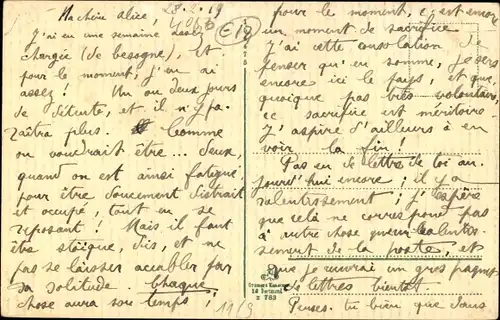 28-2-19
Ma chère Alice,
J'ai eu une semaine assez
chargée (de besogne), et
pour le moment, j'en ai
assez! Un ou deux jours
de détente, et il n'y pa-
raîtra plus. Comme
on voudrait être... deux,
quand on est ainsi fatigué,
pour être doucement distrait
et occupé, tout en se
reposant! Mais il faut
être stoïque, dis, et ne
pas se laisser accabler par
sa solitude. Chaque
chose aura son temps!
pour le moment, c'est encore
un moment de sacrifice
J'ai cette consolation de
penser qu'en somme, je sers
encore ici le pays, et que,
quoique pas très volontaire,
ce sacrifice est méritoire.
J'aspire d'ailleurs à en
voir la fin!
Pas eu de lettre de toi au-
jourd'hui encore; il y a
ralentissement; j'espère
que celà ne correspond pas
à autre chose qu'un ralentis-
sement de la poste, et
que je recevrai un gros paquet
de lettres bientôt.
Penses-tu bien que dans
11/3
Cramers Kunstanst.
Dortmund